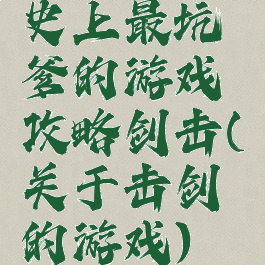 史上最坑
爹的游戏
攻略剑击(
关于击剑
的游戏)